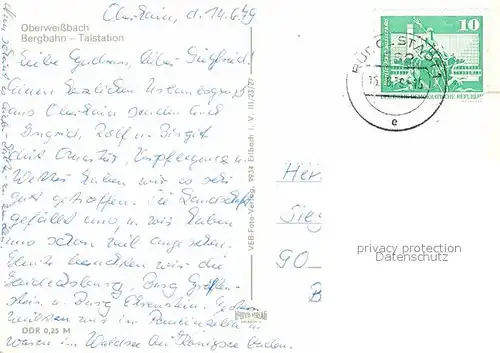 Oberhain, d. 14.6.79
Oberweißbach
Bergbahn - Talstation
Liebe Gudrun, lieber Siegfried!
Einen herzlichen Urlaubsgruß
aus Oberhain senden euch
Ingrid, Rolf u. Birgit
Mit Quartier, Verpflegung u.
Wetter haben wir es sehr
gut getroffen. Die Landschaft
gefällt uns, u. wir haben
uns schon viel angesehen.
Heute besuchten wir die
Burg Greifen-
stein u. Burg Ehrenstein. Gestern
waren wir in Paulinzella u.
waren im Waldsee bei Königsee baden.
DDR 0,25 M
VEB-Foto-Verlag, 9934 Erlbach i. V. III/20/27
10
DEUTSCHE DEMOKRATISCHE REPUBLIK
RUDOLSTADT 1
e
Her
Sieg
90
privacy protection
Datenschutz